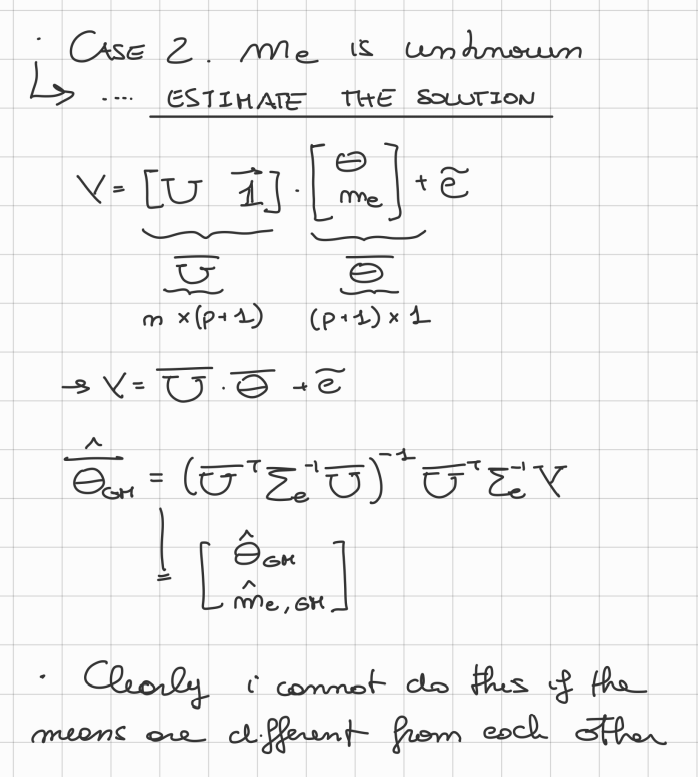 · CASE 2. me is unknown
↳ .... ESTIMATE THE SOLUTION
Y = [U 1⃗] · [Θ
me] + ẽ
U̅ Θ̅
m × (p+1) (p+1) × 1
→ Y = U̅ · Θ̅ + ẽ
Θ̅̂_GM = (U̅ᵀ Σe⁻¹ U̅)⁻¹ U̅ᵀ Σe⁻¹ Y
= [Θ̂_GM
m̂e,GM]
· Clearly i cannot do this if the
means are different from each other